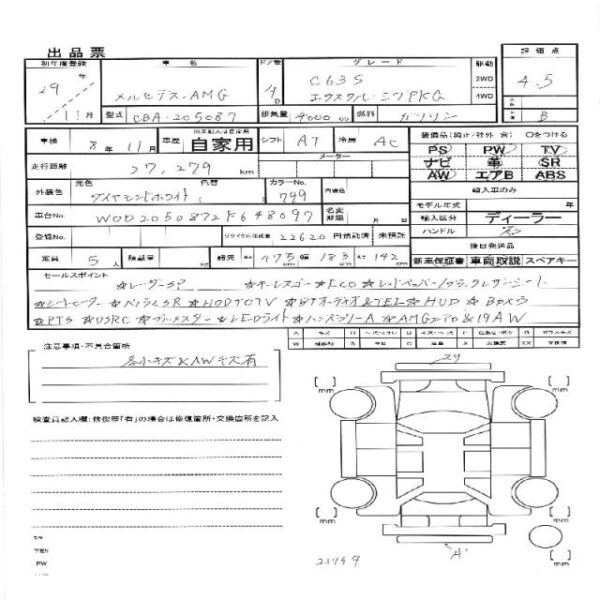 出品票
初年度登録 車名 ドア数 グレード 駆動 評価点
29年 メルセデス-AMG 4D C63S 2WD 4.5
11月 エクスクルーシブPKG 4WD
型式 CBA-205087 排気量 4000cc 燃料 ガソリン B
車検 8年11月 車歴 自家用 シフト AT 冷房 AC 装備品(純正/社外 含) ○をつける
走行距離 27,279 km メーター PS PW TV
ナビ 革 SR
AW エアB ABS
外装色 元色 ダイヤモンドホワイト 色替 カラーNo. 799 内装色 輸入車のみ
モデル年式 年
車台No. WDD2050872F648097 名変期限 月 日 輸入区分 ディーラー
登録No. リサイクル預託金 22620 円預託済 未預託 ハンドル
後日発送品
定員 5人 積載量 諸元 長 475 幅 183 高 142 cm 新車保証書 車両取説 スペアキー
セールスポイント
☆レーダーSP ☆キーレスゴー☆ECO☆レッドペッパー/ブラックレザーシート
☆シートヒーター ☆パノラマSR☆HDDナビTV ☆BTオーディオ&TEL☆HUD☆Bカメラ
☆PTS ☆DSRC ☆ブルメスター ☆LEDライト☆ハンズフリーA ☆AMGエアロ&19AW
注意事項・不具合箇所
各小キズ&AWキズ有
スリ
検査員記入欄:修復歴「有」の場合は修復箇所・交換箇所を記入
[ ] mm
[ ] mm
[ ] mm
[ ] mm
[ ] mm
キラ
下廻り
PW
A'
21799